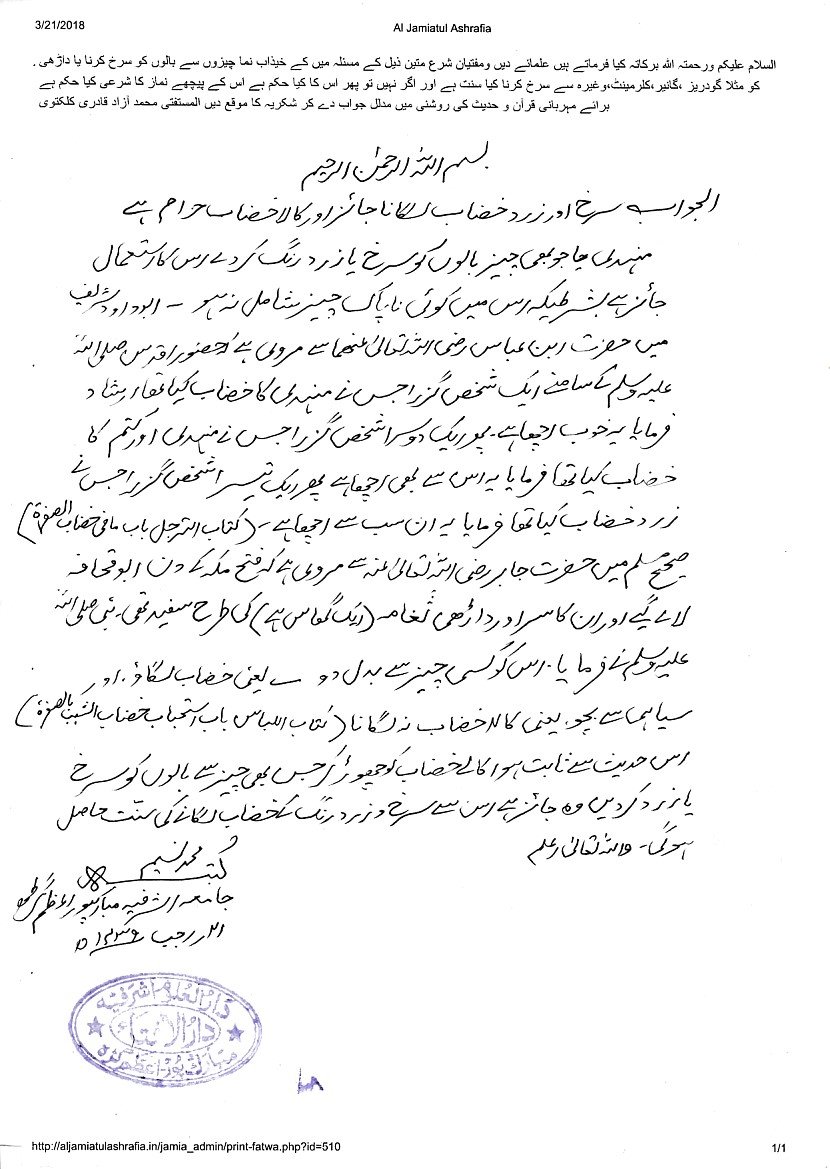 3/21/2018
Al Jamiatul Ashrafia
السلام علیکم ورحمتہ اللہ برکاتہ کیا فرماتے ہیں علمائے دیں ومفتیان شرع متین ذیل کے مسئلہ میں کے خیذاب نما چیزوں سے بالوں کو سرخ کرنا یا داڑھی .
کو مثلا گودریز ،گانیر،کلرمینٹ،وغیرہ سے سرخ کرنا کیا سنت ہے اور اگر نہیں تو پھر اس کا کیا حکم ہے اس کے پیچھے نماز کا شرعی کیا حکم ہے
برائے مہربانی قرآن و حدیث کی روشنی میں مدلل جواب دے کر شکریہ کا موقع دیں المستفتی محمد آزاد قادری کلکتوی
بسم اللہ الرحمٰن الرحیم
الجواب سرخ اور زرد خضاب لگانا جائز اور کالا خضاب حرام ہے
منہدی یا جو بھی چیز بالوں کو سرخ یا زرد رنگ کر دے اس کا استعمال
جائز ہے بشرطیکہ اس میں کوئی ناپاک چیز شامل نہ ہو – ابوداود شریف
میں حضرت ابن عباس رضی اللہ تعالیٰ عنھما سے مروی ہے کہ حضور اقدس صلی اللہ
علیہ وسلم کے سامنے ایک شخص گزرا جس نے منہدی کا خضاب کیا تھا ارشاد
فرمایا یہ خوب اچھا ہے۔ پھر ایک دوسرا شخص گزرا جس نے منہدی اور کتم کا
خضاب کیا تھا فرمایا یہ اس سے بھی اچھا ہے پھر ایک تیسرا شخص گزرا جس نے
زرد خضاب کیا تھا فرمایا یہ ان سب سے اچھا ہے – (کتاب الترجل باب ما فی خضاب الصفرۃ)
صحیح مسلم میں حضرت جابر رضی اللہ تعالیٰ عنہ سے مروی ہے کہ فتح مکہ کے دن ابو قحافہ
لائے گیے اور ان کا سر اور داڑھی ثغامہ (ایک گھاس ہے) کی طرح سفید تھی۔ نبی صلی اللہ
علیہ وسلم نے فرمایا: اس کو کسی چیز سے بدل دو – یعنی خضاب لگاؤ، اور
سیاہی سے بچو۔ یعنی کالا خضاب نہ لگانا (کتاب اللباس باب استحباب خضاب الشیب بالصفرۃ)
اس حدیث سے ثابت ہوا کالے خضاب کو چھوڑ کر جس بھی چیز سے بالوں کو سرخ
یا زرد کر دیں وہ جائز ہے اس سے سرخ و زرد رنگ کے خضاب لگانے کی سنّت حاصل
ہوگی – واللہ تعالیٰ اعلم
محمد نسیم
کتبہ
جامعہ اشرفیہ مبارکپور اعظم گڑھ
رجب ۱۴۳۹ھ
دار العلوم اشرفیہ
دار الافتاء
مبارک پور اعظم گڑھ
http://aljamiatulashrafia.in/jamia_admin/print-fatwa.php?id=510
1/1